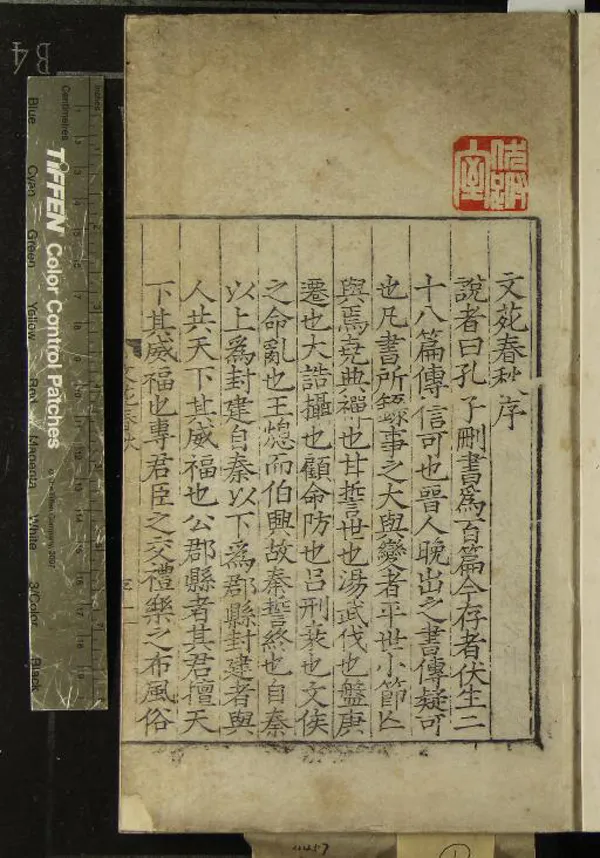 文苑春秋序
說者曰孔子刪書為百篇今存者伏生二
十八篇傳信可也晉人晚出之書傳疑可
也凡書所錄事之大與變者平世小節亾
與焉堯典禪也甘誓世也湯武伐也盤庚
遷也大誥攝也顧命防也呂刑衰也文侯
之命亂也王熄而伯興故秦誓終也自秦
以上為封建自秦以下為郡縣封建者與
人共天下其威福也公郡縣者其君擅天
下其威福也專君臣之交禮樂之布風俗
文苑春秋
序
一
B4
Inches
Centimetres
TIFFEN Color Control Patches
© The Tiffen Company, 2007
Blue
Cyan
Green
Yellow
Red
Magenta
White
3/Color
Black